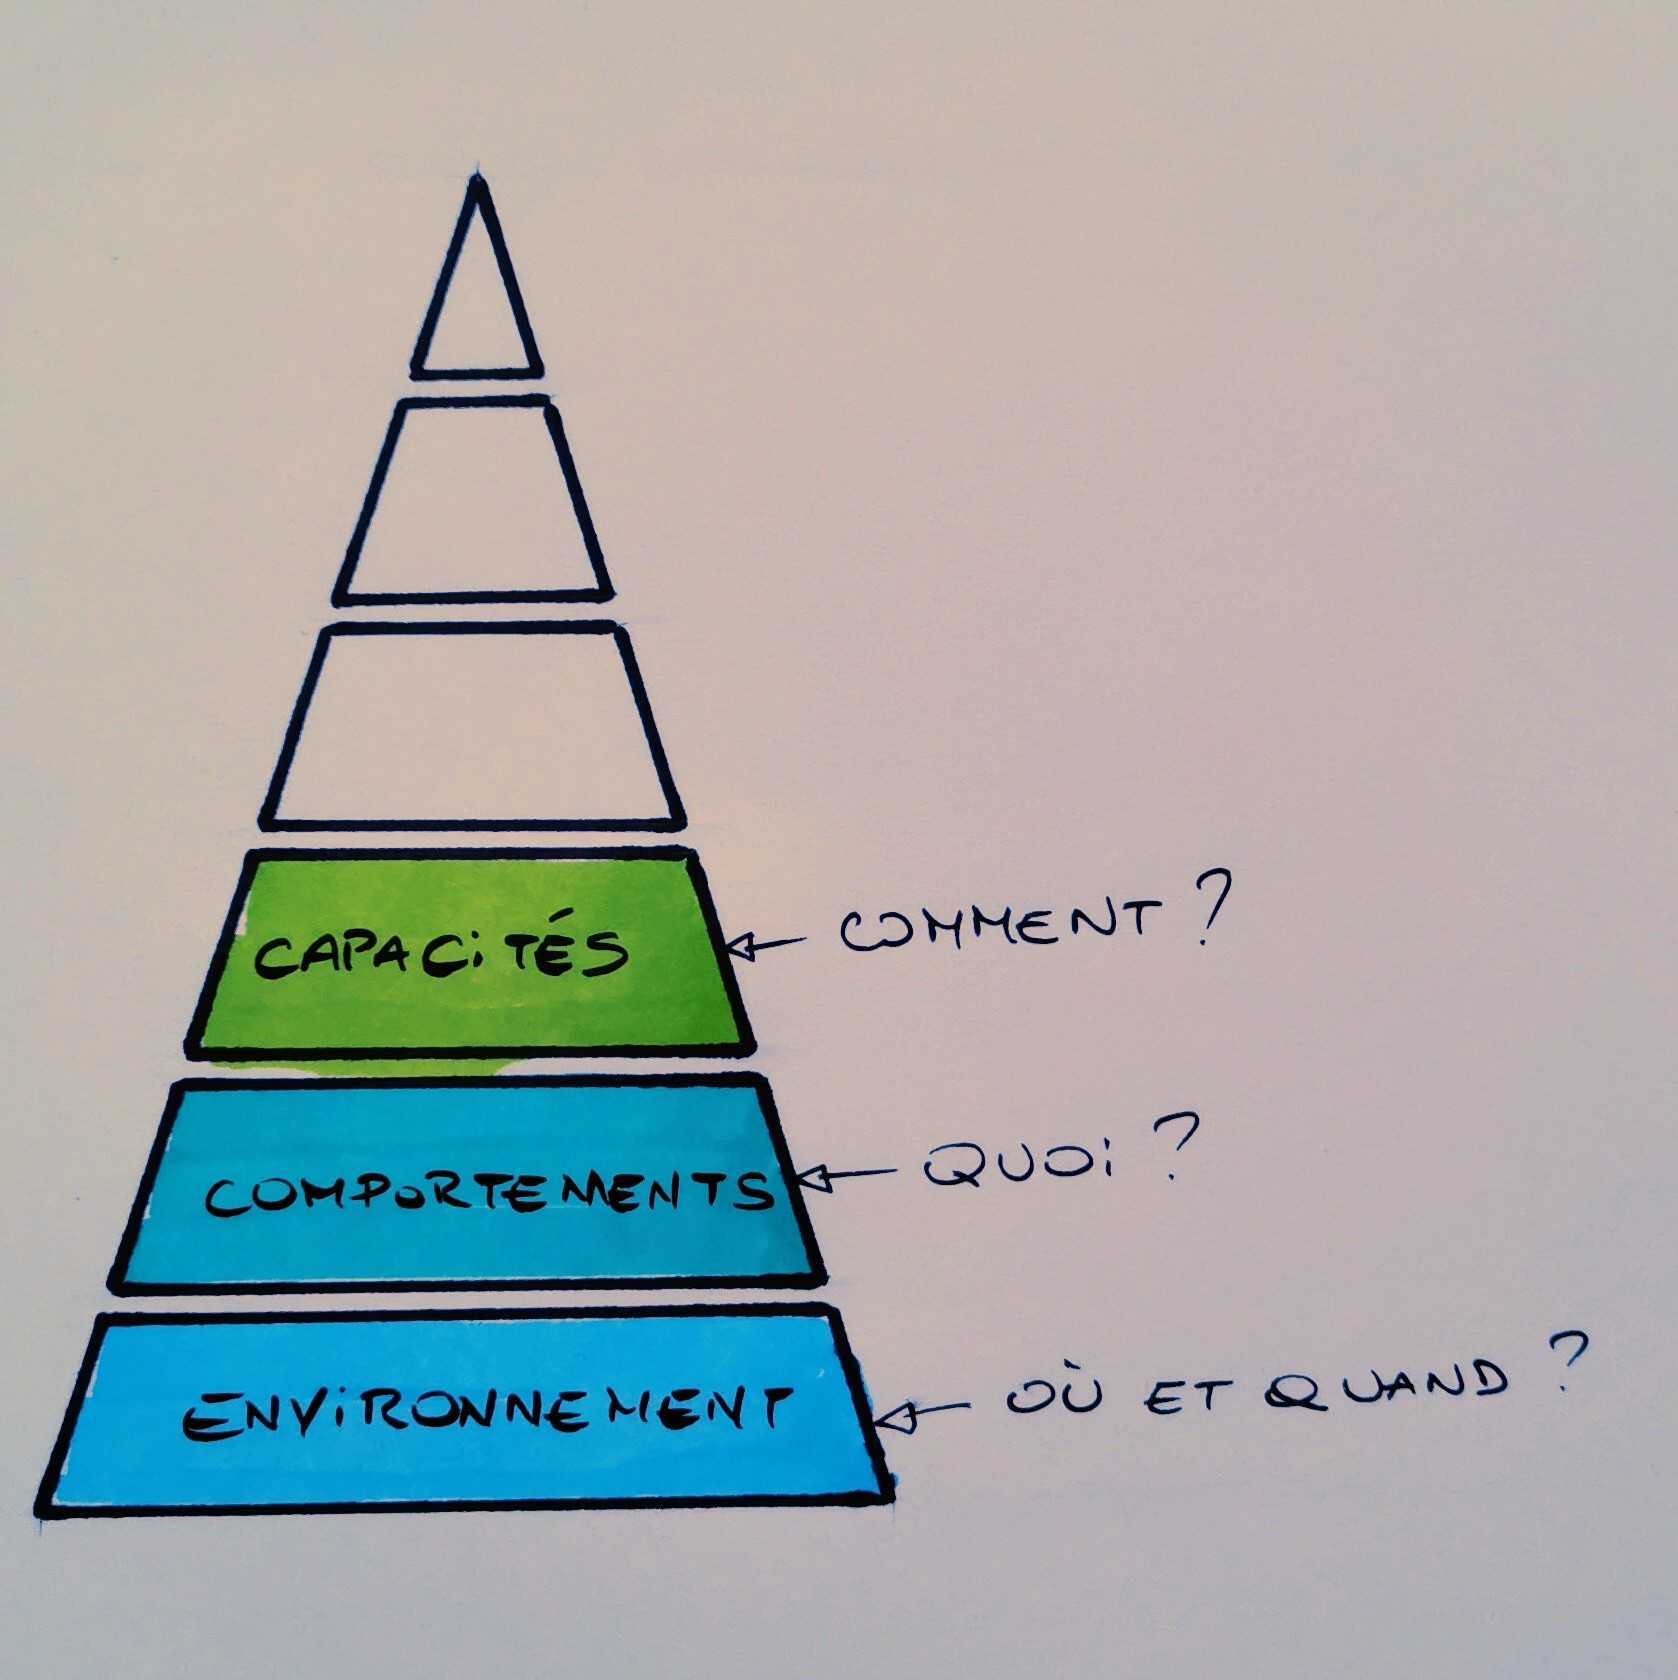 CAPACITÉS
COMMENT ?
COMPORTEMENTS
QUOI ?
ENVIRONNEMENT
OÙ ET QUAND ?